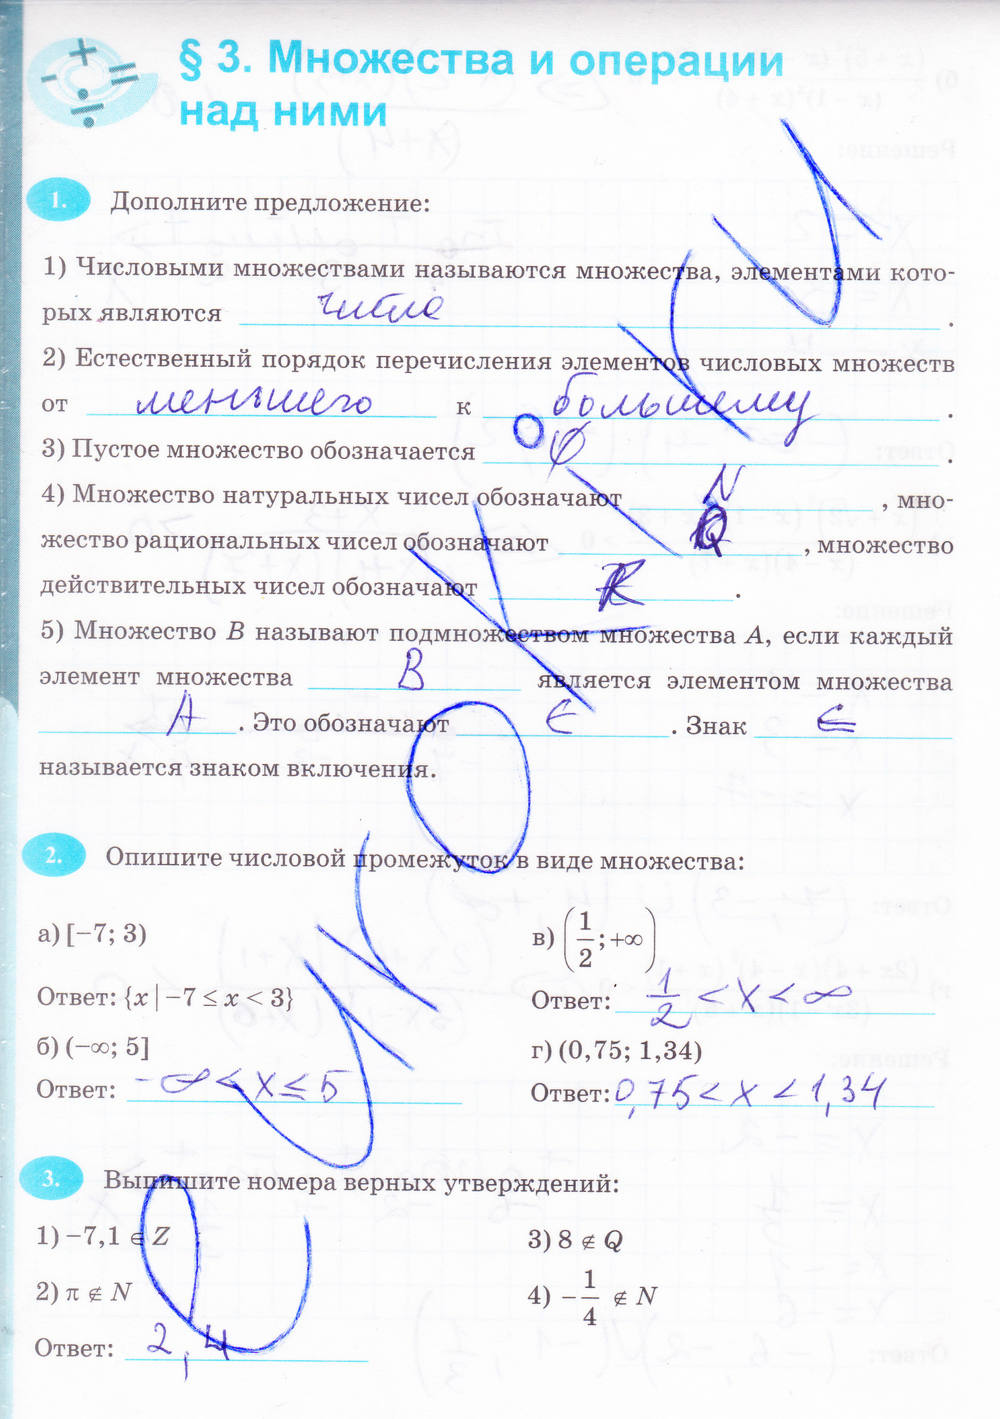 § 3. Множества и операции
над ними
1. Дополните предложение:
1) Числовыми множествами называются множества, элементами кото-
рых являются числа .
2) Естественный порядок перечисления элементов числовых множеств
от меньшего к большему .
3) Пустое множество обозначается ∅ .
4) Множество натуральных чисел обозначают N , мно-
жество рациональных чисел обозначают Q , множество
действительных чисел обозначают R .
5) Множество B называют подмножеством множества A, если каждый
элемент множества B является элементом множества
A . Это обозначают ∈ . Знак ∈
называется знаком включения.
2. Опишите числовой промежуток в виде множества:
а) [−7; 3)
Ответ: {x | −7 ≤ x < 3}
б) (−∞; 5]
Ответ: −∞ < x ≤ 5
в) (1/2; +∞)
Ответ: 1/2 < x < ∞
г) (0,75; 1,34)
Ответ: 0,75 < x < 1,34
3. Выпишите номера верных утверждений:
1) −7,1 ∈ Z
2) π ∉ N
3) 8 ∉ Q
4) −1/4 ∉ N
Ответ: 2, 4